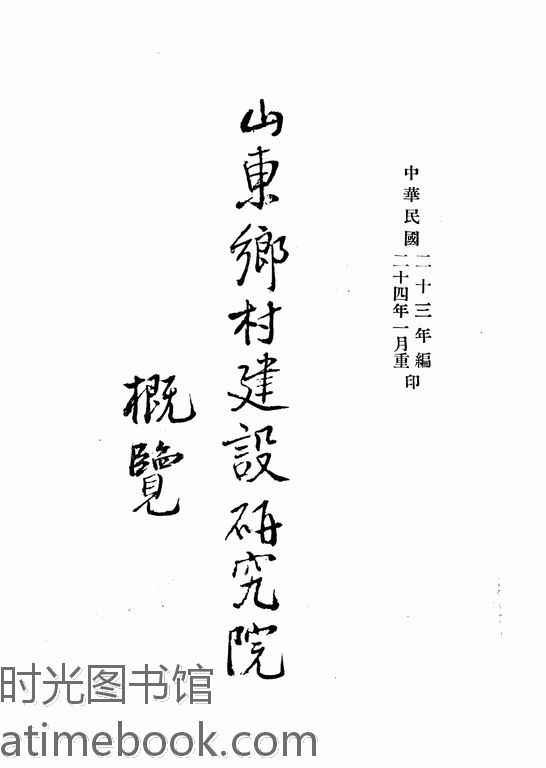 中華民國二十三年編
二十四年一月重印
山東鄉村建設研究院
概覽
时光图书馆
atimebook.com